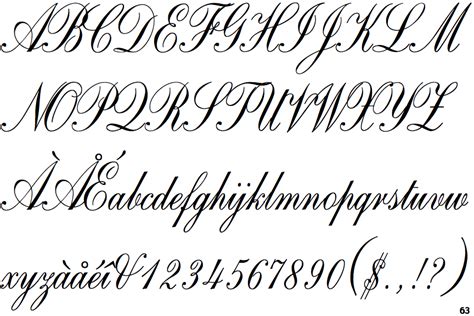 ABCDEFGHIJKLM
NOPQRSTUVWXYZ
ÀÅÉabcdefghijklmnopqrstuvw
xyzàåéî&1234567890($.,!?)
63